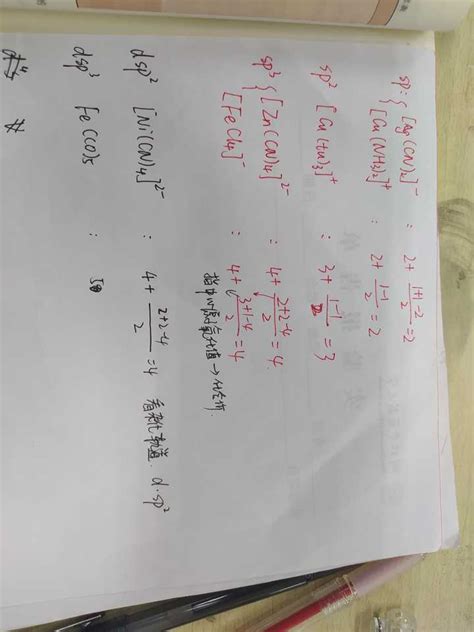 sp: { [Ag(CN)₂]⁻ : 2+(1+1-2)/2=2
[Cu(NH₃)₂]⁺ : 2+(1-1)/2=2
sp² [Cu(tu)₃]⁺ : 3+(1-1)/2=3
sp³ { [Zn(CN)₄]²⁻ : 4+(2+2-4)/2=4
[FeCl₄]⁻ : 4+(3+1-4)/2=4
指中心原子氧化值→化合价.
dsp² [Ni(CN)₄]²⁻ : 4+(2+2-4)/2=4 看杂化轨道. d·sp²
dsp³ Fe(CO)₅ : 5